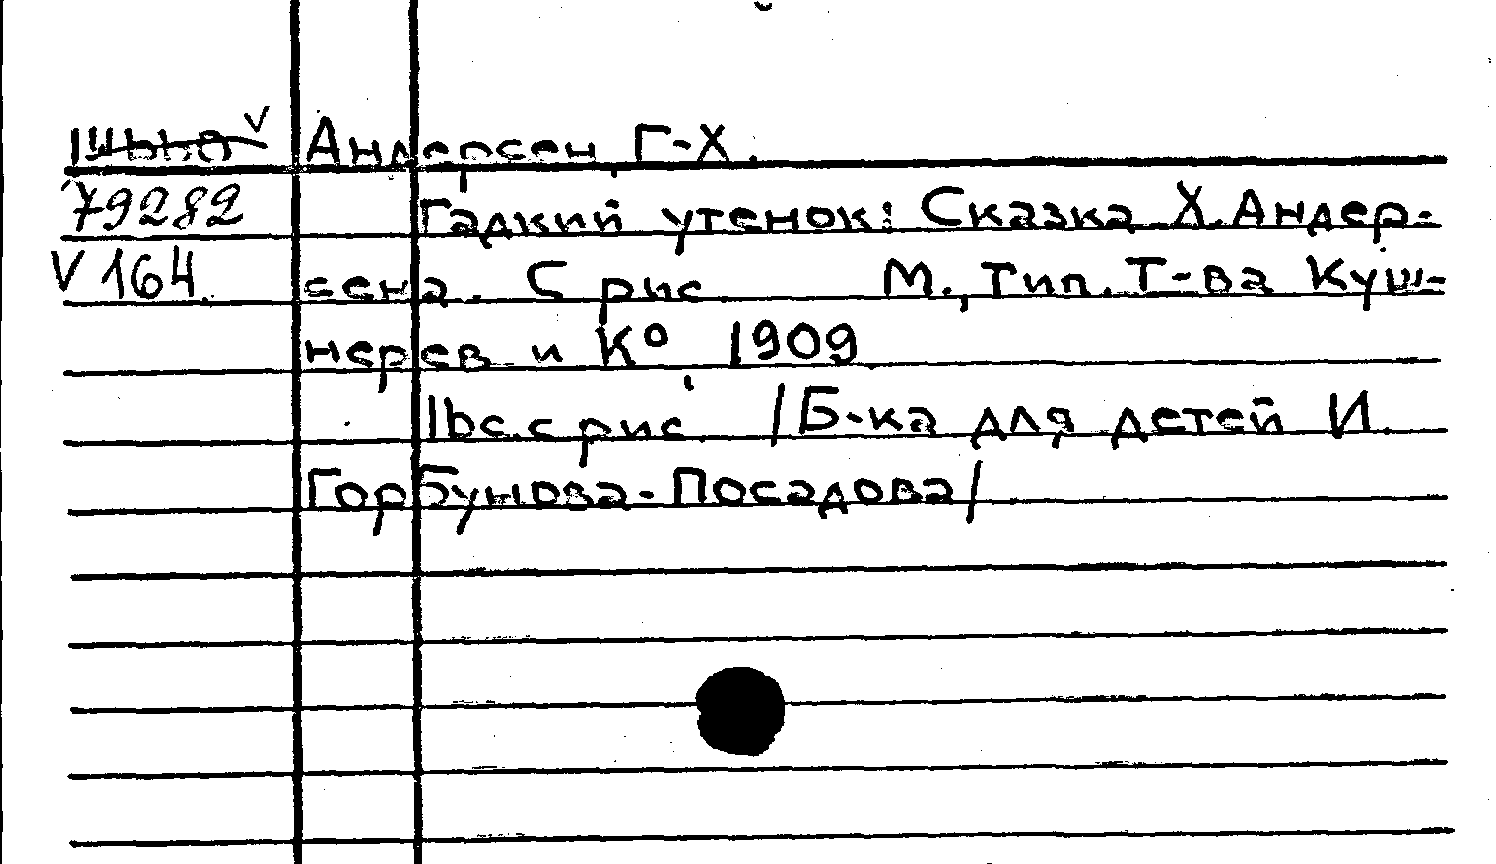 Андерсен, Г-Х.
79282 Гадкий утенок: Сказка Х. Андер-
V 164 сена. С рис М., Тип. Т-ва Куш-
нерев и К° 1909.
16с. с рис. /Б-ка для детей И.
Горбунова-Посадова/